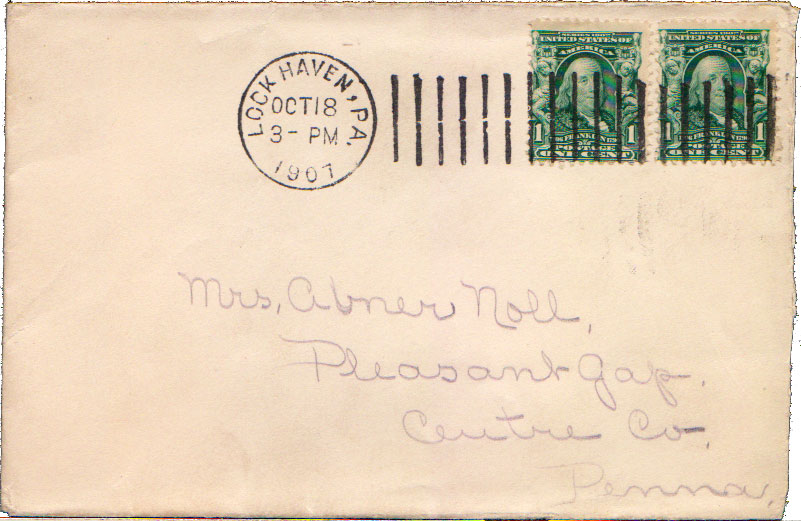 SERIES 1902
UNITED STATES OF
AMERICA
1 FRANKLIN 1
POSTAGE
ONE CENT
SERIES 1902
UNITED STATES OF
AMERICA
1 FRANKLIN 1
POSTAGE
ONE CENT
LOCK HAVEN, PA.
OCT 18
3- PM
1907
Mrs. Abner Noll,
Pleasant Gap.
Centre Co.
Penna.